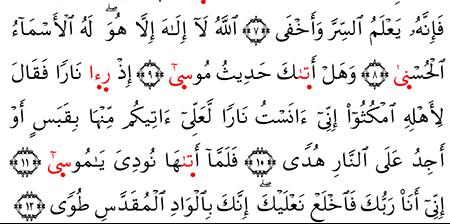 فَإِنَّهُۥ يَعْلَمُ ٱلسِّرَّ وَأَخْفَى ﴿٧﴾ ٱللَّهُ لَآ إِلَـٰهَ إِلَّا هُوَۖ لَهُ ٱلْأَسْمَآءُ
ٱلْحُسْنىٰ ﴿٨﴾ وَهَلْ أَتىٰكَ حَدِيثُ مُوسىٰٓ ﴿٩﴾ إِذْ رءا نَارًا فَقَالَ
لِأَهْلِهِ ٱمْكُثُوٓا۟ إِنِّىٓ ءَانَسْتُ نَارًا لَّعَلِّىٓ ءَاتِيكُم مِّنْهَا بِقَبَسٍ أَوْ
أَجِدُ عَلَى ٱلنَّارِ هُدًى ﴿١٠﴾ فَلَمَّآ أَتىٰهَا نُودِىَ يَـٰمُوسىٰٓ ﴿١١﴾
إِنِّىٓ أَنَا۠ رَبُّكَ فَٱخْلَعْ نَعْلَيْكَۖ إِنَّكَ بِٱلْوَادِ ٱلْمُقَدَّسِ طُوًى ﴿١٢﴾